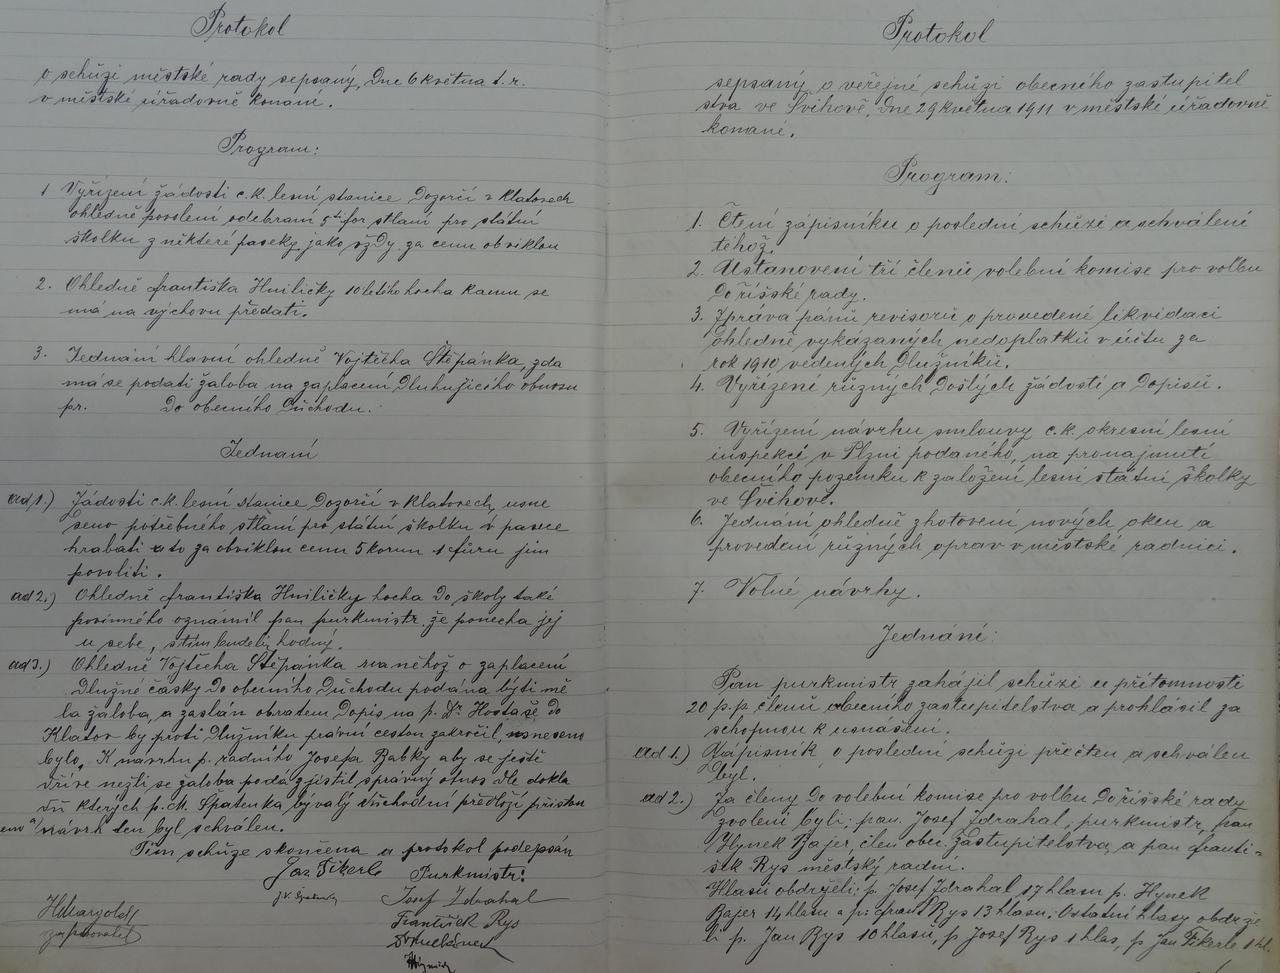 Protokol
o schůzi městské rady sepsaný, dne 6 května t. r.
v městské úřadovně konané.
Program:
1 Vyřízení žádosti c. k. lesní stanice dozorčí v Klatovech
ohledně povolení odebrání 5ti for stlaní pro státní
školku z některé paseky jako vždy za cenu obviklou
2. Ohledně Františka Hniličky 10 letého hocha kamu se
má na výchovu předati.
3. Jednání hlavní ohledně Vojtěcha Štěpánka, zda
má se podati žaloba na zaplacení dluhujicího obnosu
pr. do obecního důchodu.
Jednaní
ad 1.) Žádosti c. k. lesní stanice dozorčí v Klatovech, usne
seno potřebného stlaní pro státní školku v pasece
hrabati a to za obviklou cenu 5 korun 1 fůru jim
povoliti.
ad 2.) Ohledně Františka Hniličky hocha do školy také
povinného oznámil pan purkmistr že ponechá jej
u sebe, s tím bude-li hodný.
ad 3.) Ohledně Vojtěcha Štěpánka na něhož o zaplacení
dlužné částky do obecního důchodu podána býti mě
la žaloba, a zaslán obratem dopis na p. Dr Hostaše do
Klatov by proti dlužníku právní cestou zakročil, usneseno
bylo, K návrhu p. radního Josefa Rabky aby se ještě
dříve nežli se žaloba podá zjistil správný obnos dle dokla
dů kterých p. M. Špatenka bývalý důchodní předloží přísluš
návrh ten byl schválen.
Tím schůze skončena a protokol podepsán
Jos. Fikerle Purkmistr:
Josef Zdrahal
František Rys
zapisovatel
Protokol
sepsaný o veřejné schůzi obecného zastupitel
stva ve Švihově, dne 29 května 1911 v městské úřadovně
konané.
Program:
1. Čtení zápisníku o poslední schůzi a schválení
téhož.
2. Ustanovení tří členů volební komise pro volbu
dořišské rady.
3. Zpráva pánů revisorů o provedené likvidaci
ohledně vykázaných nedoplatků v účtu za
rok 1910 vedených dlužníků.
4. Vyřízení různých došlých žádostí a dopisů.
5. Vyřízení návrhu smlouvy c. k. okresní lesní
inspekcí v Plzni podaného, na pronajmutí
obecního pozemku k založení lesní státní školky
ve Švihově.
6. Jednání ohledně zhotovení nových oken a
provedení různých oprav v městské radnici.
7. Volné návrhy.
Jednání:
Pan purkmistr zahájil schůzi u přítomnosti
20 p. p. členů obecního zastupitelstva a prohlásil za
schopnou k usnášení.
ad 1.) Zápisník o poslední schůzi přečten a schválen
byl.
ad 2.) Za členy do volební komise pro volbu dořišské rady
zvoleni byli; pan. Josef Zdrahal, purkmistr, pan
Hynek Bajer, člen obec. zastupitelstva, a pan Franti-
šek Rys městský radní.
Hlasů obdrželi: p. Josef Zdrahal 17 hlasu p. Hynek
Bajer 14 hlasu a p. Frant Rys 13 hlasu; Ostatní hlasy obdrže
li p. Jan Rys 10 hlasů, p Josef Rys 1 hlas, p Jan Fikerle 1 hl.